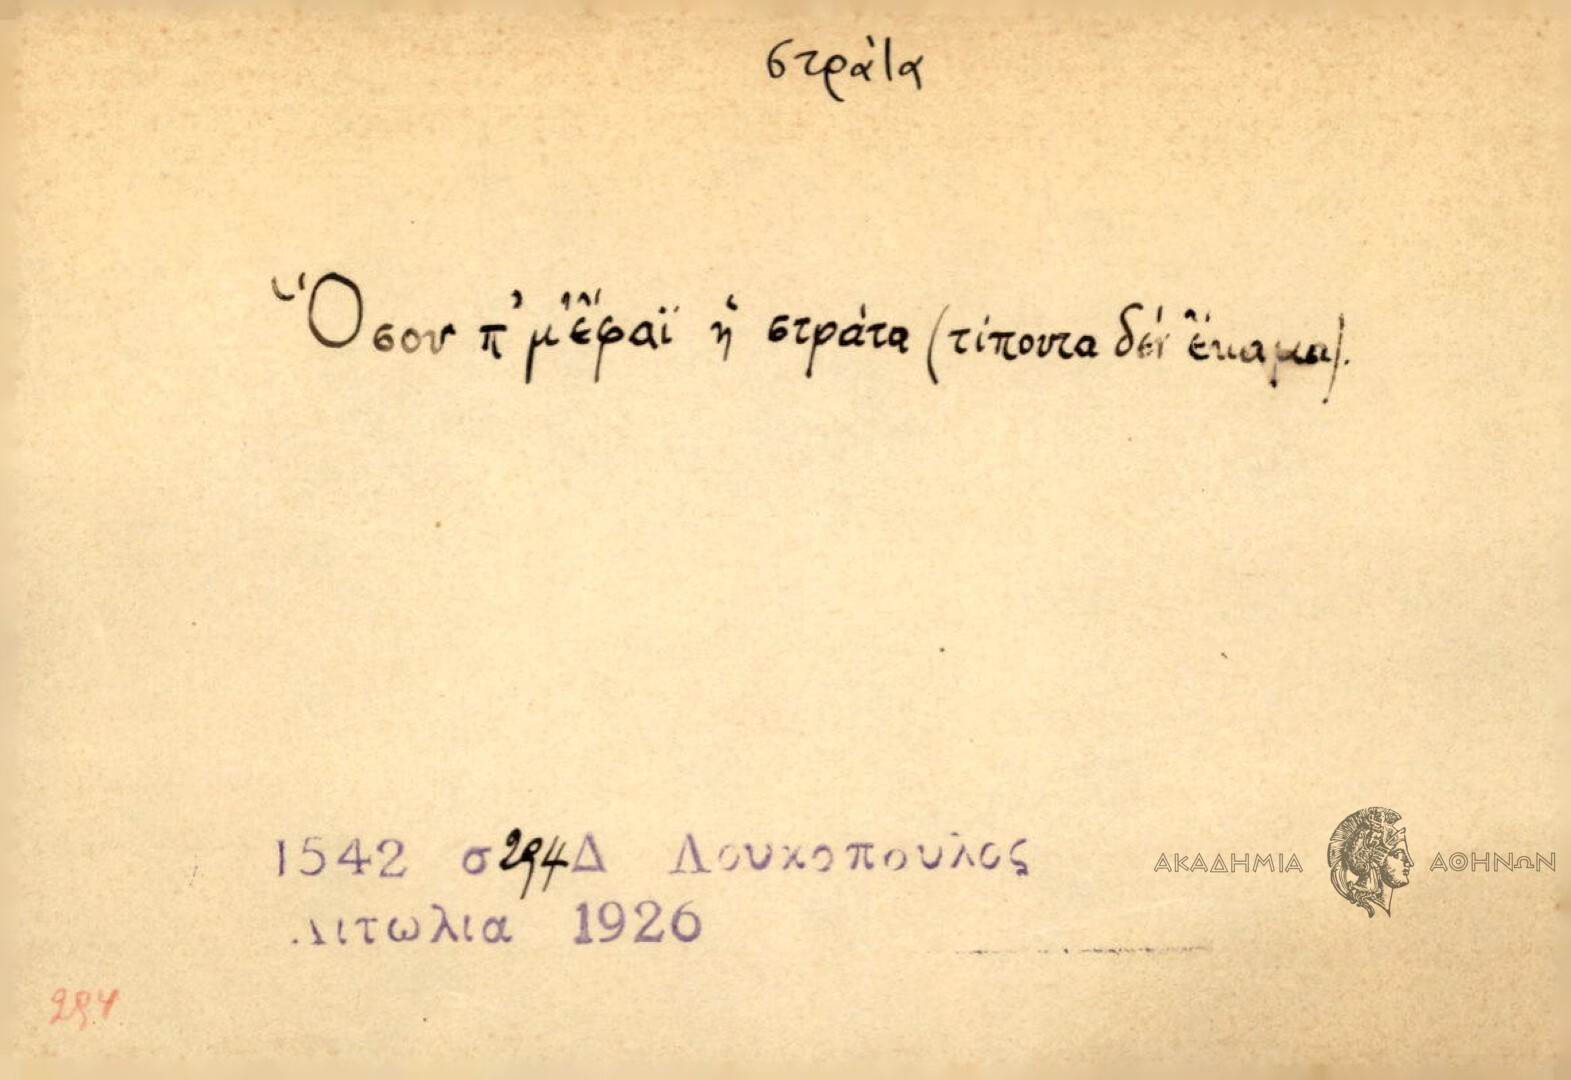 στράτα
Ὅσον π' μ' ἔφαϊ ἡ στράτα (τίποντα δέν ἔκαμα).
1542 σ 294 Δ Λουκοπουλος
Αιτωλια 1926
ΑΚΑΔΗΜΙΑ ΑΘΗΝΩΝ
294